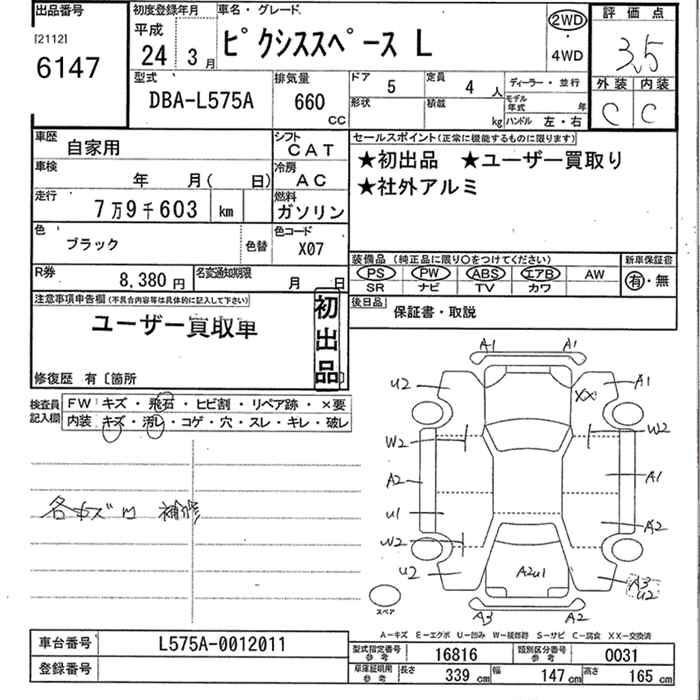 出品番号
[2112]
6147
初度登録年月
平成
24 3月
車名・グレード
ピクシススペース L
2WD
4WD
評価点
3.5
外装 内装
C C
型式
DBA-L575A
排気量
660
CC
ドア
5
定員
4人
ディーラー・並行
形状
積載
kg
モデル年式
年
ハンドル 左・右
車歴
自家用
シフト
CAT
車検
年 月( 日)
冷房
AC
走行
7万9千603 km
燃料
ガソリン
色
ブラック
色替
色コード
X07
R券
8,380円
名変通知期限
月 日
セールスポイント(正常に機能するものに限ります)
★初出品 ★ユーザー買取り
★社外アルミ
装備品 (純正品に限り○をつけてください)
PS PW ABS エアB AW
SR ナビ TV カワ
新車保証書
有・無
後日品
保証書・取説
注意事項申告欄(不具合内容等は具体的に記入して下さい)
ユーザー買取車
初出品
修復歴 有〔箇所
検査員記入欄
FW キズ・飛石・ヒビ割・リペア跡・×要
内装 キズ・汚レ・コゲ・穴・スレ・キレ・破レ
各キズ凹 補修
A1 A1
U2 A1
XX
W2 W2
A2 A1
U1 A2
W2
U2 A2U1 A3 U2
A3 A2
スペア
A-キズ E-エクボ U-凹み W-補修跡 S-サビ C-腐食 XX-交換済
車台番号
L575A-0012011
登録番号
型式指定番号 参考
16816
類別区分番号 参考
0031
車庫証明用 参考
長さ 339 cm
幅 147 cm
高さ 165 cm